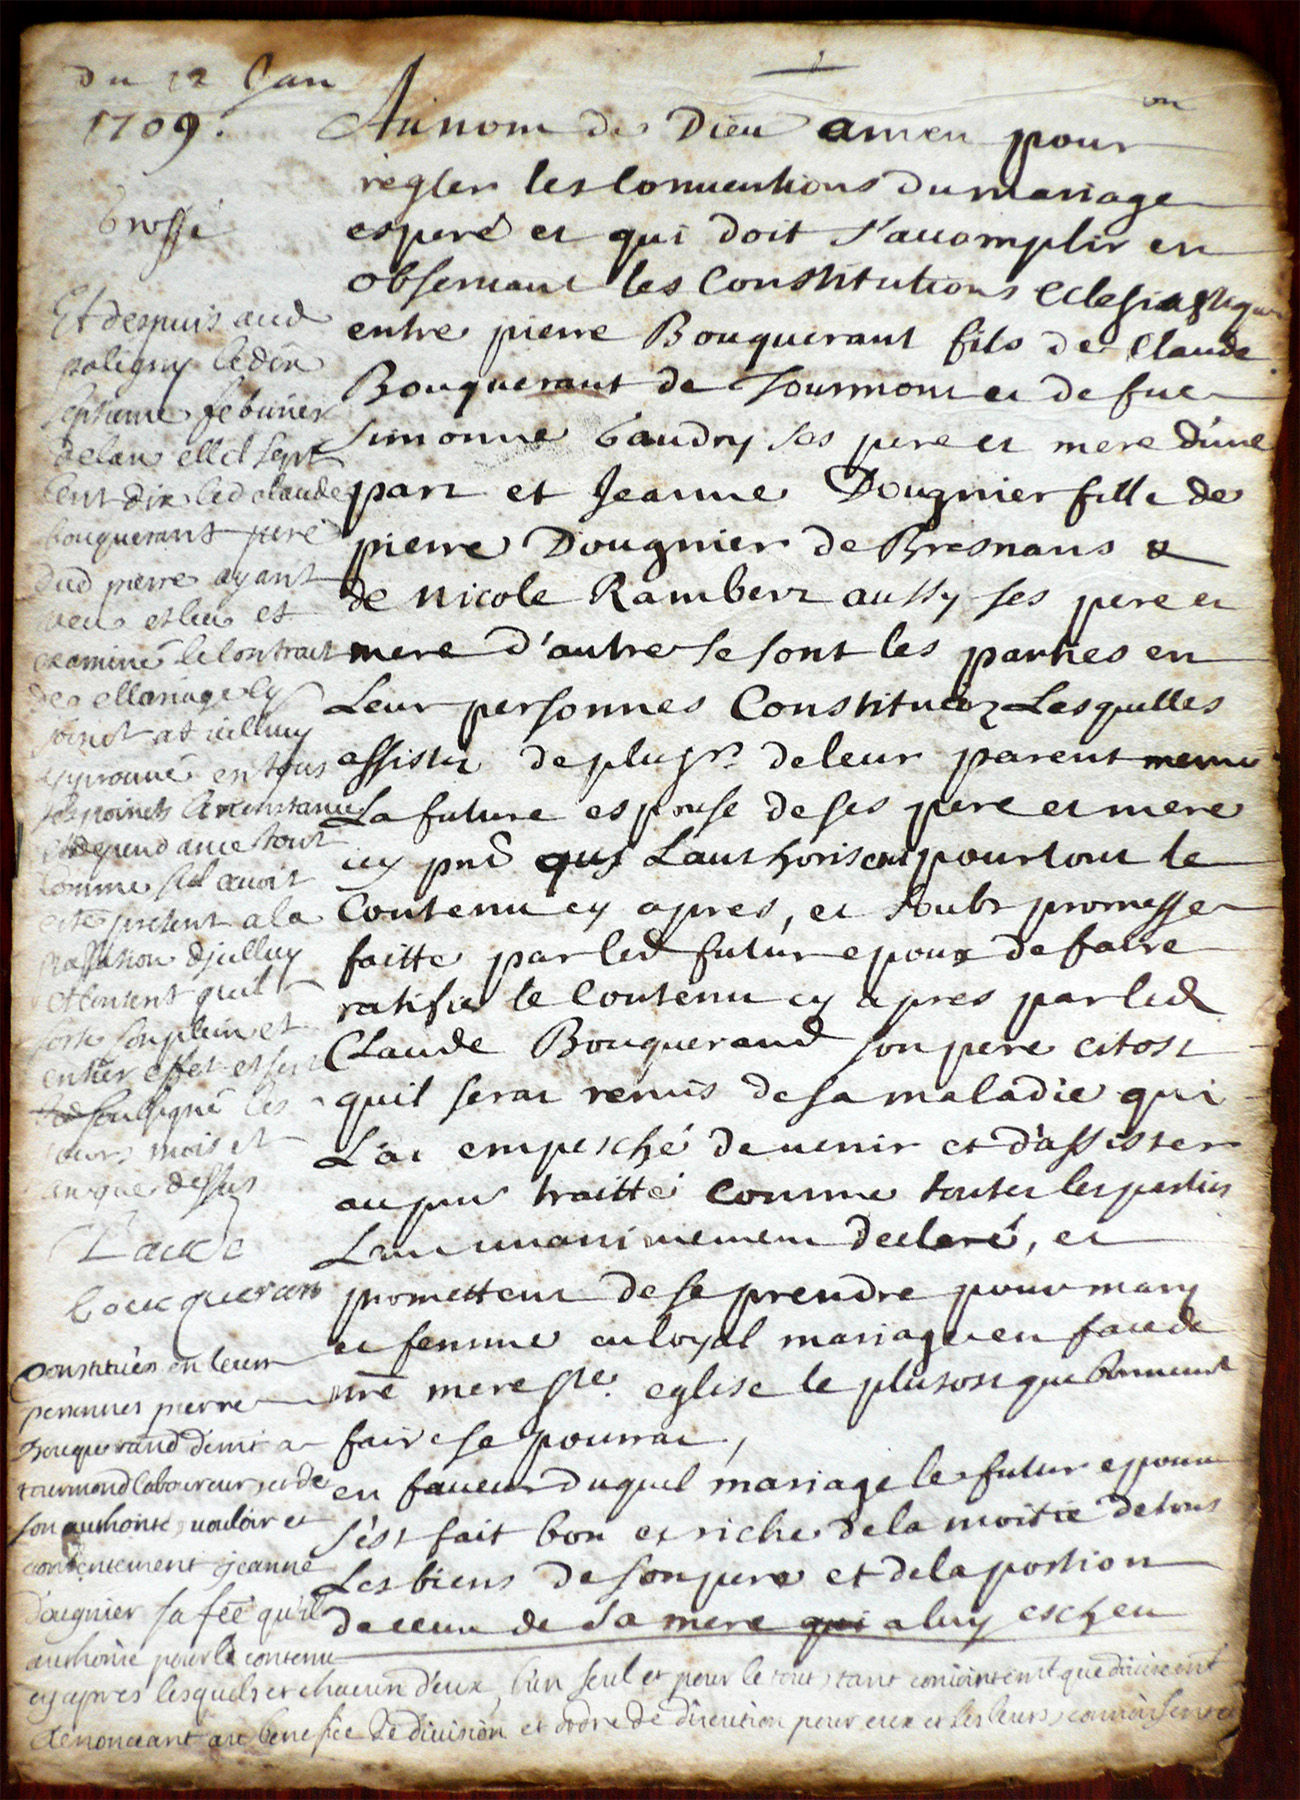 Du 12 Jan
1709.
Au nom de Dieu amen pour
regler les Conuentions du mariage
esperé et qui doit s'accomplir en
obseruant les Constitutions eclesiastiques
entre pierre Bouquerant fils de Claude
Bouquerant de Tourmont et de fue
simonne baudry ses pere et mere d'une
part et Jeanne Dougnier fille de
pierre Dougnier de Bresnans &
de Nicole Rambert aussy ses pere et
mere d'autre se sont les parties en
Leur personnes Constituéez Lesquelles
assistez de plusrs. de leur parent mesme
La future espouse de ses pere et mere
icy pnt qui L'authorisent pour tout le
Contenu cy apres, et soubs promesse
faitte par led futur epoux de faire
ratifier le Contenu cy apres par led
Claude Bouquerand son pere citost
quil serat remis de sa maladie qui
L'at empesché de uenir et d'assister
au pnt traitté comme toutes les parties
L'ont unanimement declaré, et
promettent de se prendre pour mary
et femme en loyal mariage en face de
nre mere ste. eglise le plustost que bonnement
faire se pourrat,
en faueur duquel mariage le futur epoux
s'est fait bon et riche de la moitié de tous
Les biens de son pere et de la portion
de ceux de sa mere qui a luy escheu
Grossé
Et despuis aud
poligny le dix
septieme feburier
de lan mil sept
cent dix led claude
bouquerant pere
dud pierre ayant
veu et leu et
examiné le Contract
de mariage cy
joinct at icelluy
approuué en tous
ses poincts Circonstance
et dependance tout
Comme sil auoit
esté present a la
passation d'jcelluy
et Consent quil
sorte son plein et
entier effet et sest
soussigné les
jours mois et
an que dessus
Claude
boucqueran
Constituéz en leurs
personnes pierre
Bouquerand demt a
tourmond laboureur, et de
son authorité, vouloir et
consentement jeanne
d'augnier sa fée qu'il
authorise pour le contenu
cy apres lesquels et chacun d'eux, l'un seul et pour le tout, tant conjointemt que diuisemt
renonceant au benefice de diuision et ordre de discution pour eux et les leurs,